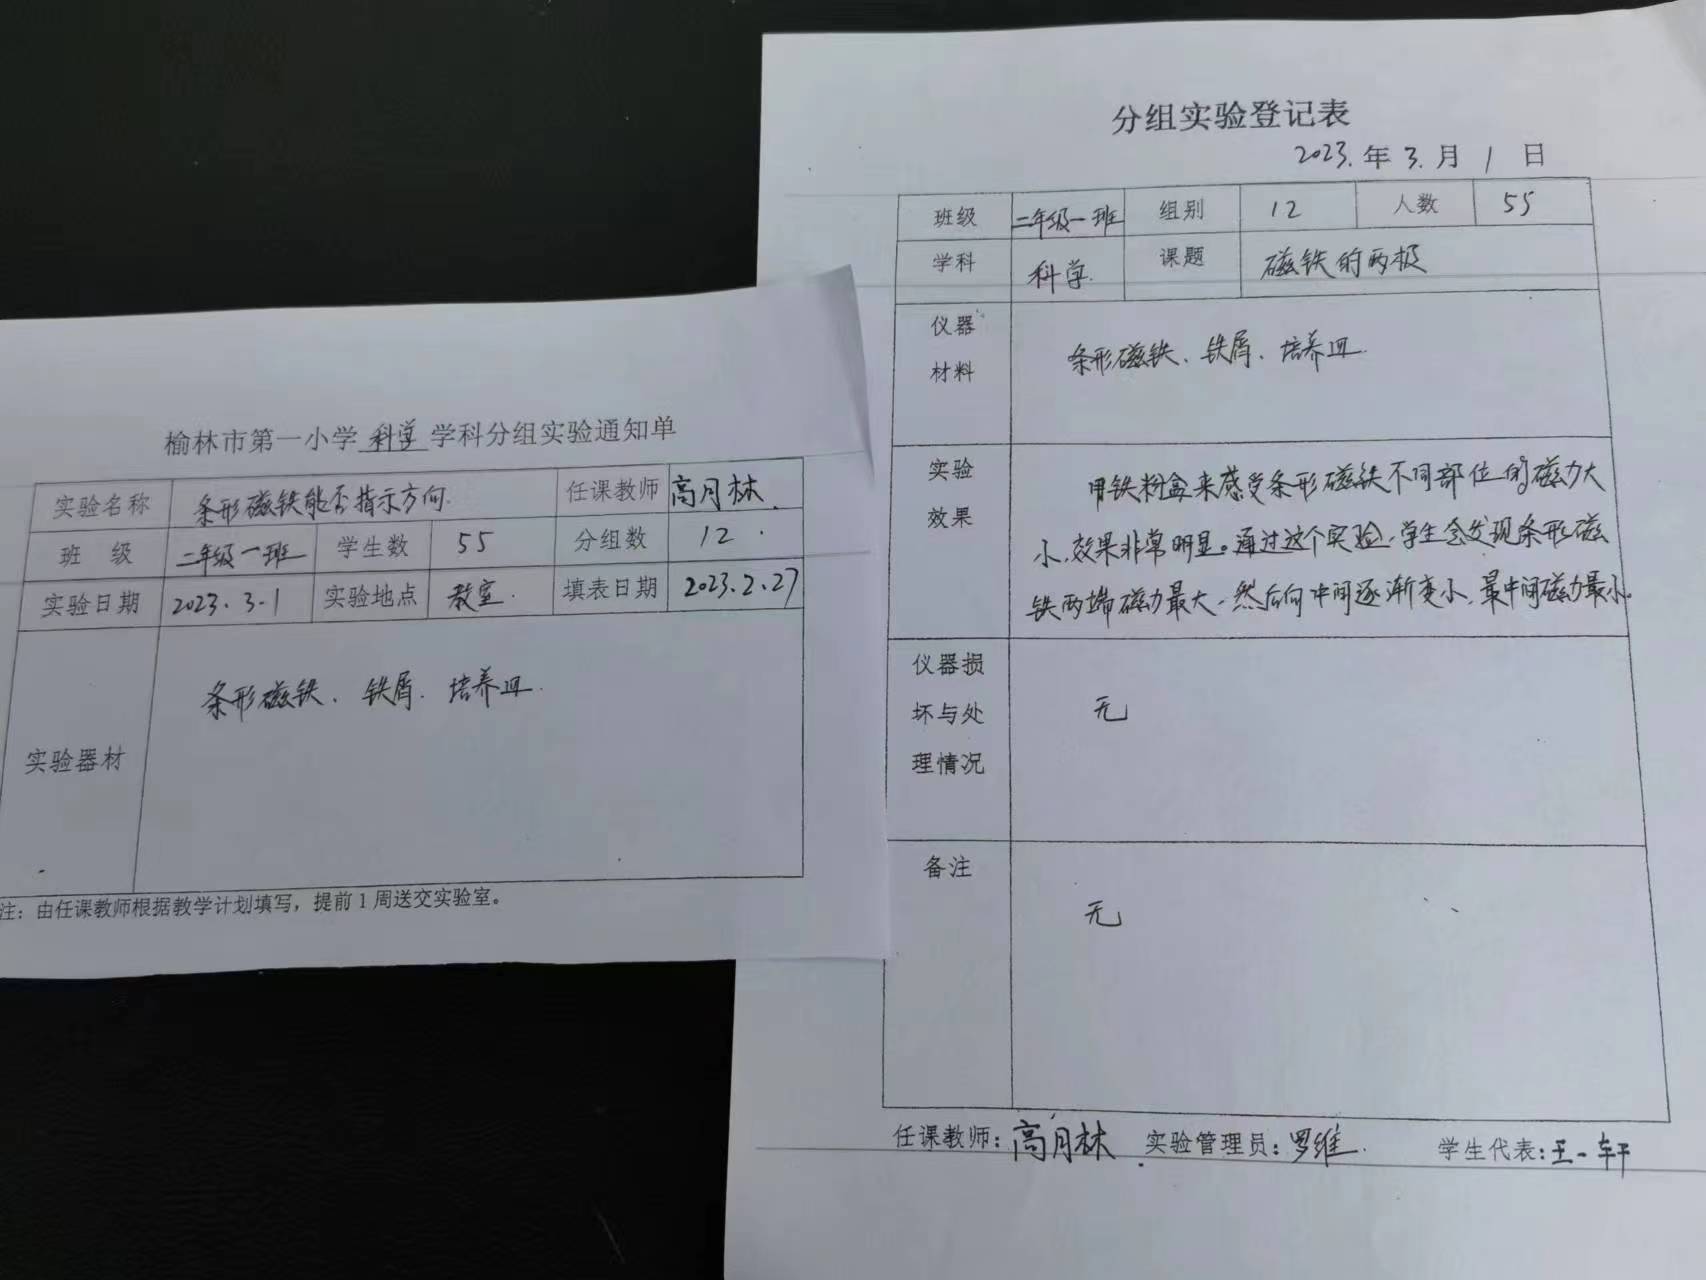 榆林市第一小学 科学 学科分组实验通知单
实验名称 条形磁铁能否指示方向. 任课教师 高月林
班 级 二年级一班 学生数 55 分组数 12
实验日期 2023.3.1 实验地点 教室. 填表日期 2023.2.27
实验器材 条形磁铁、铁屑、培养皿.
注：由任课教师根据教学计划填写，提前1周送交实验室。
分组实验登记表
2023.年3.月1日
班级 二年级一班 组别 12 人数 55
学科 科学. 课题 磁铁的两极
仪器
材料
条形磁铁、铁屑、培养皿.
实验
效果
用铁粉盒来感受条形磁铁不同部位的磁力大
小,效果非常明显。通过这个实验,学生会发现条形磁
铁两端磁力最大,然后向中间逐渐变小,最中间磁力最小.
仪器损
坏与处
理情况
无
备注
无
任课教师：高月林. 实验管理员：罗维. 学生代表：王一轩